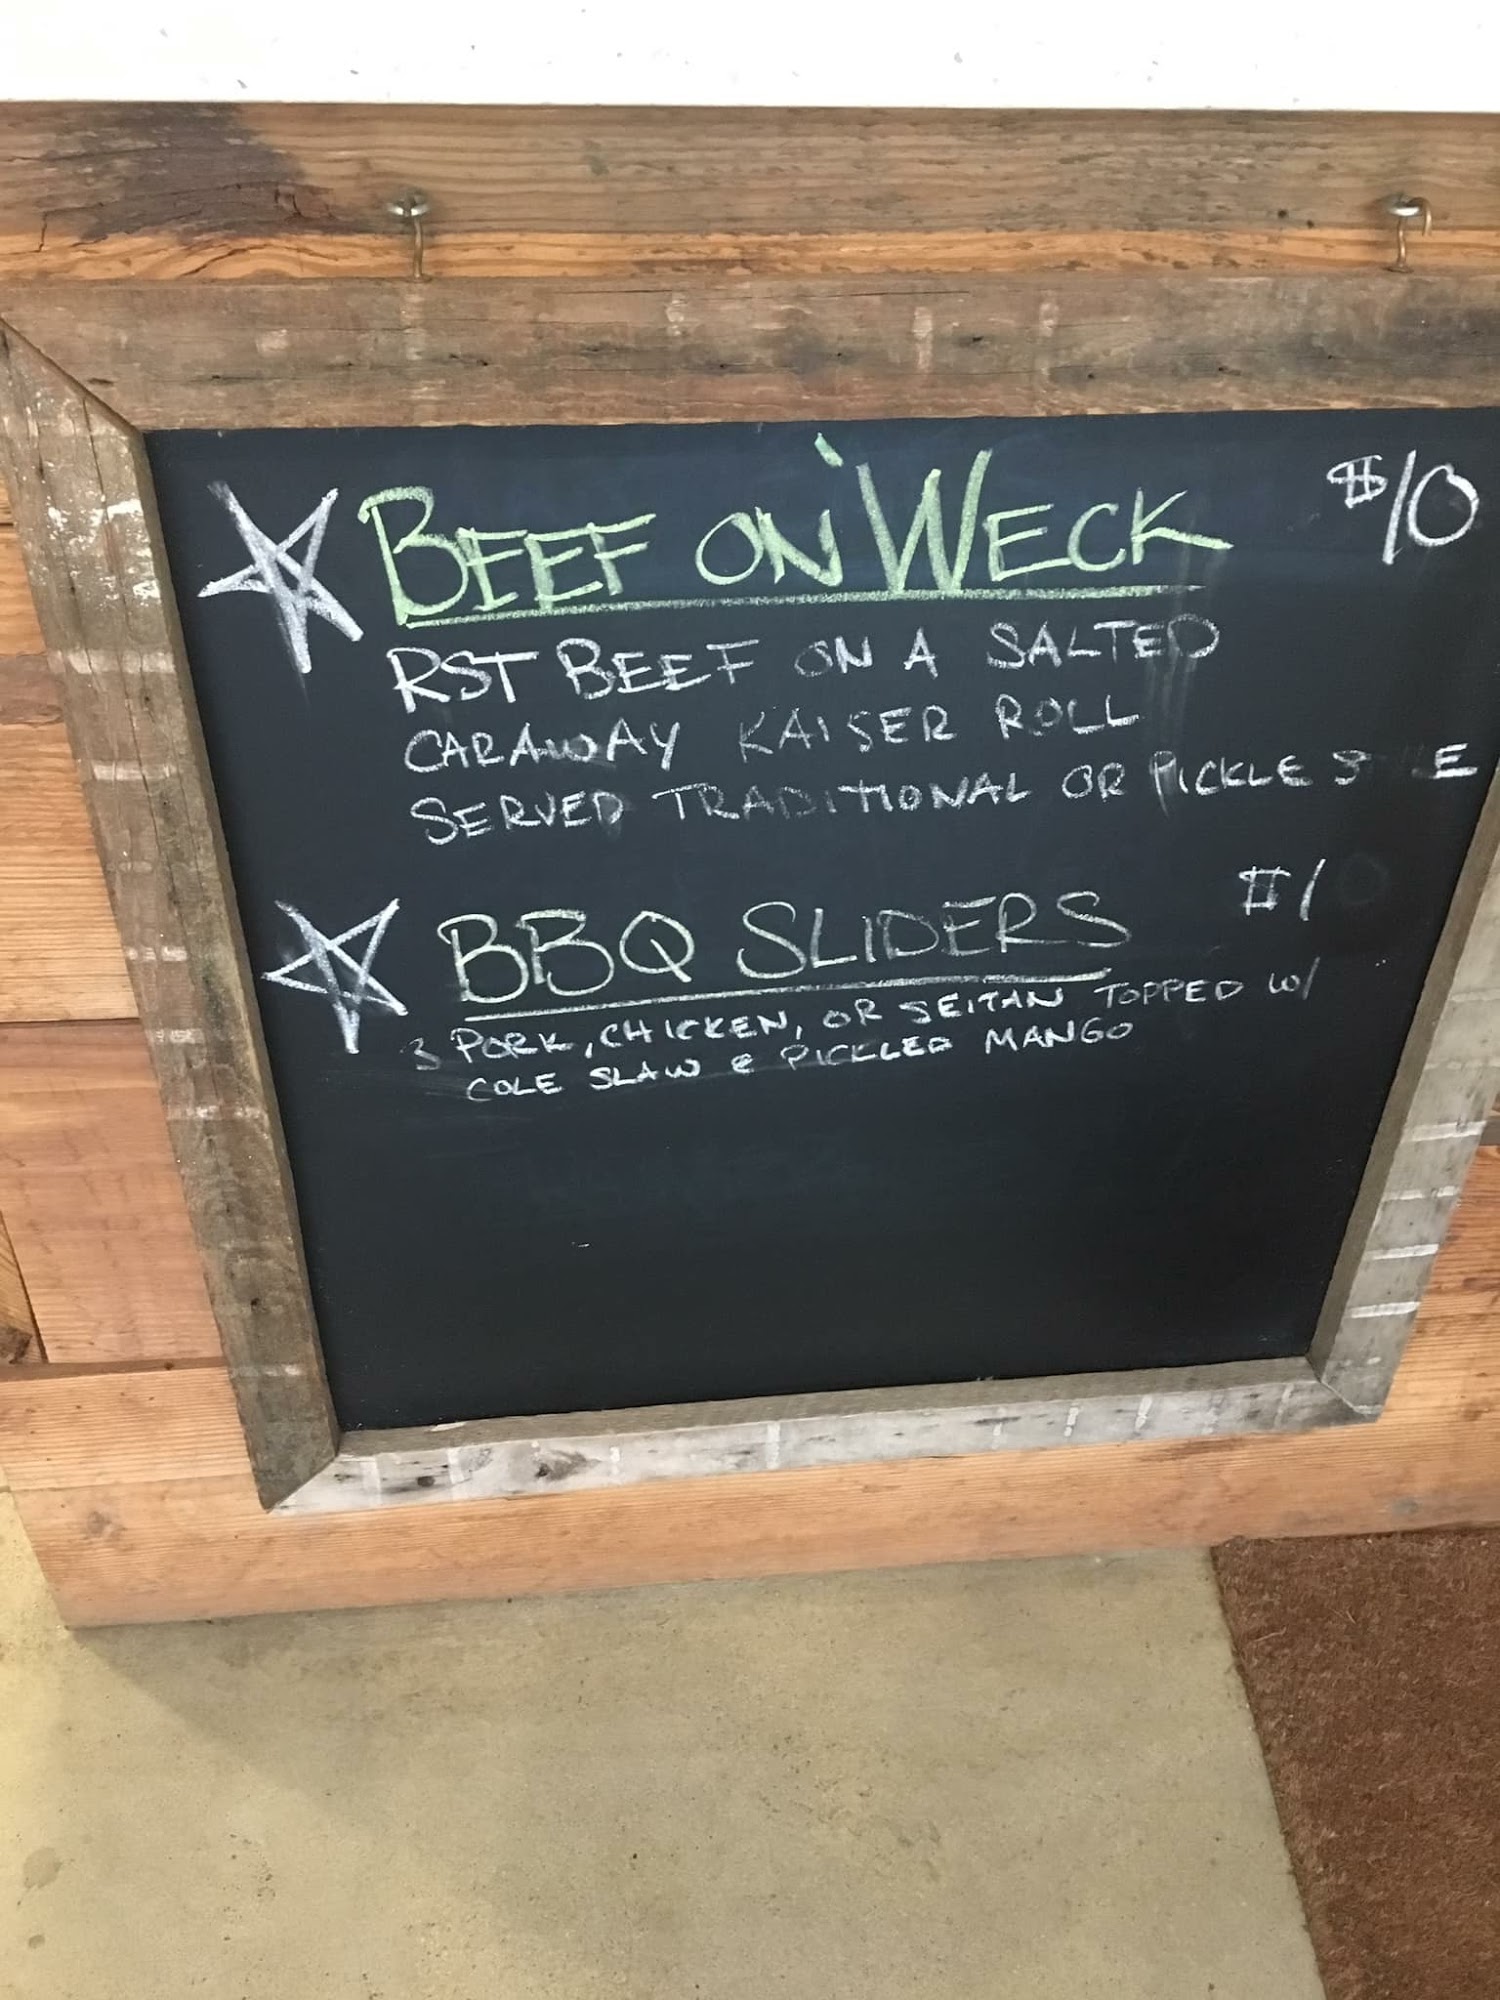 BEEF ON WECK $10
RST BEEF ON A SALTED
CARAWAY KAISER ROLL
SERVED TRADITIONAL OR PICKLE
BBQ SLIDERS
3 PORK, CHICKEN, OR SEITAN TOPPED W/
COLE SLAW & PICKLED MANGO